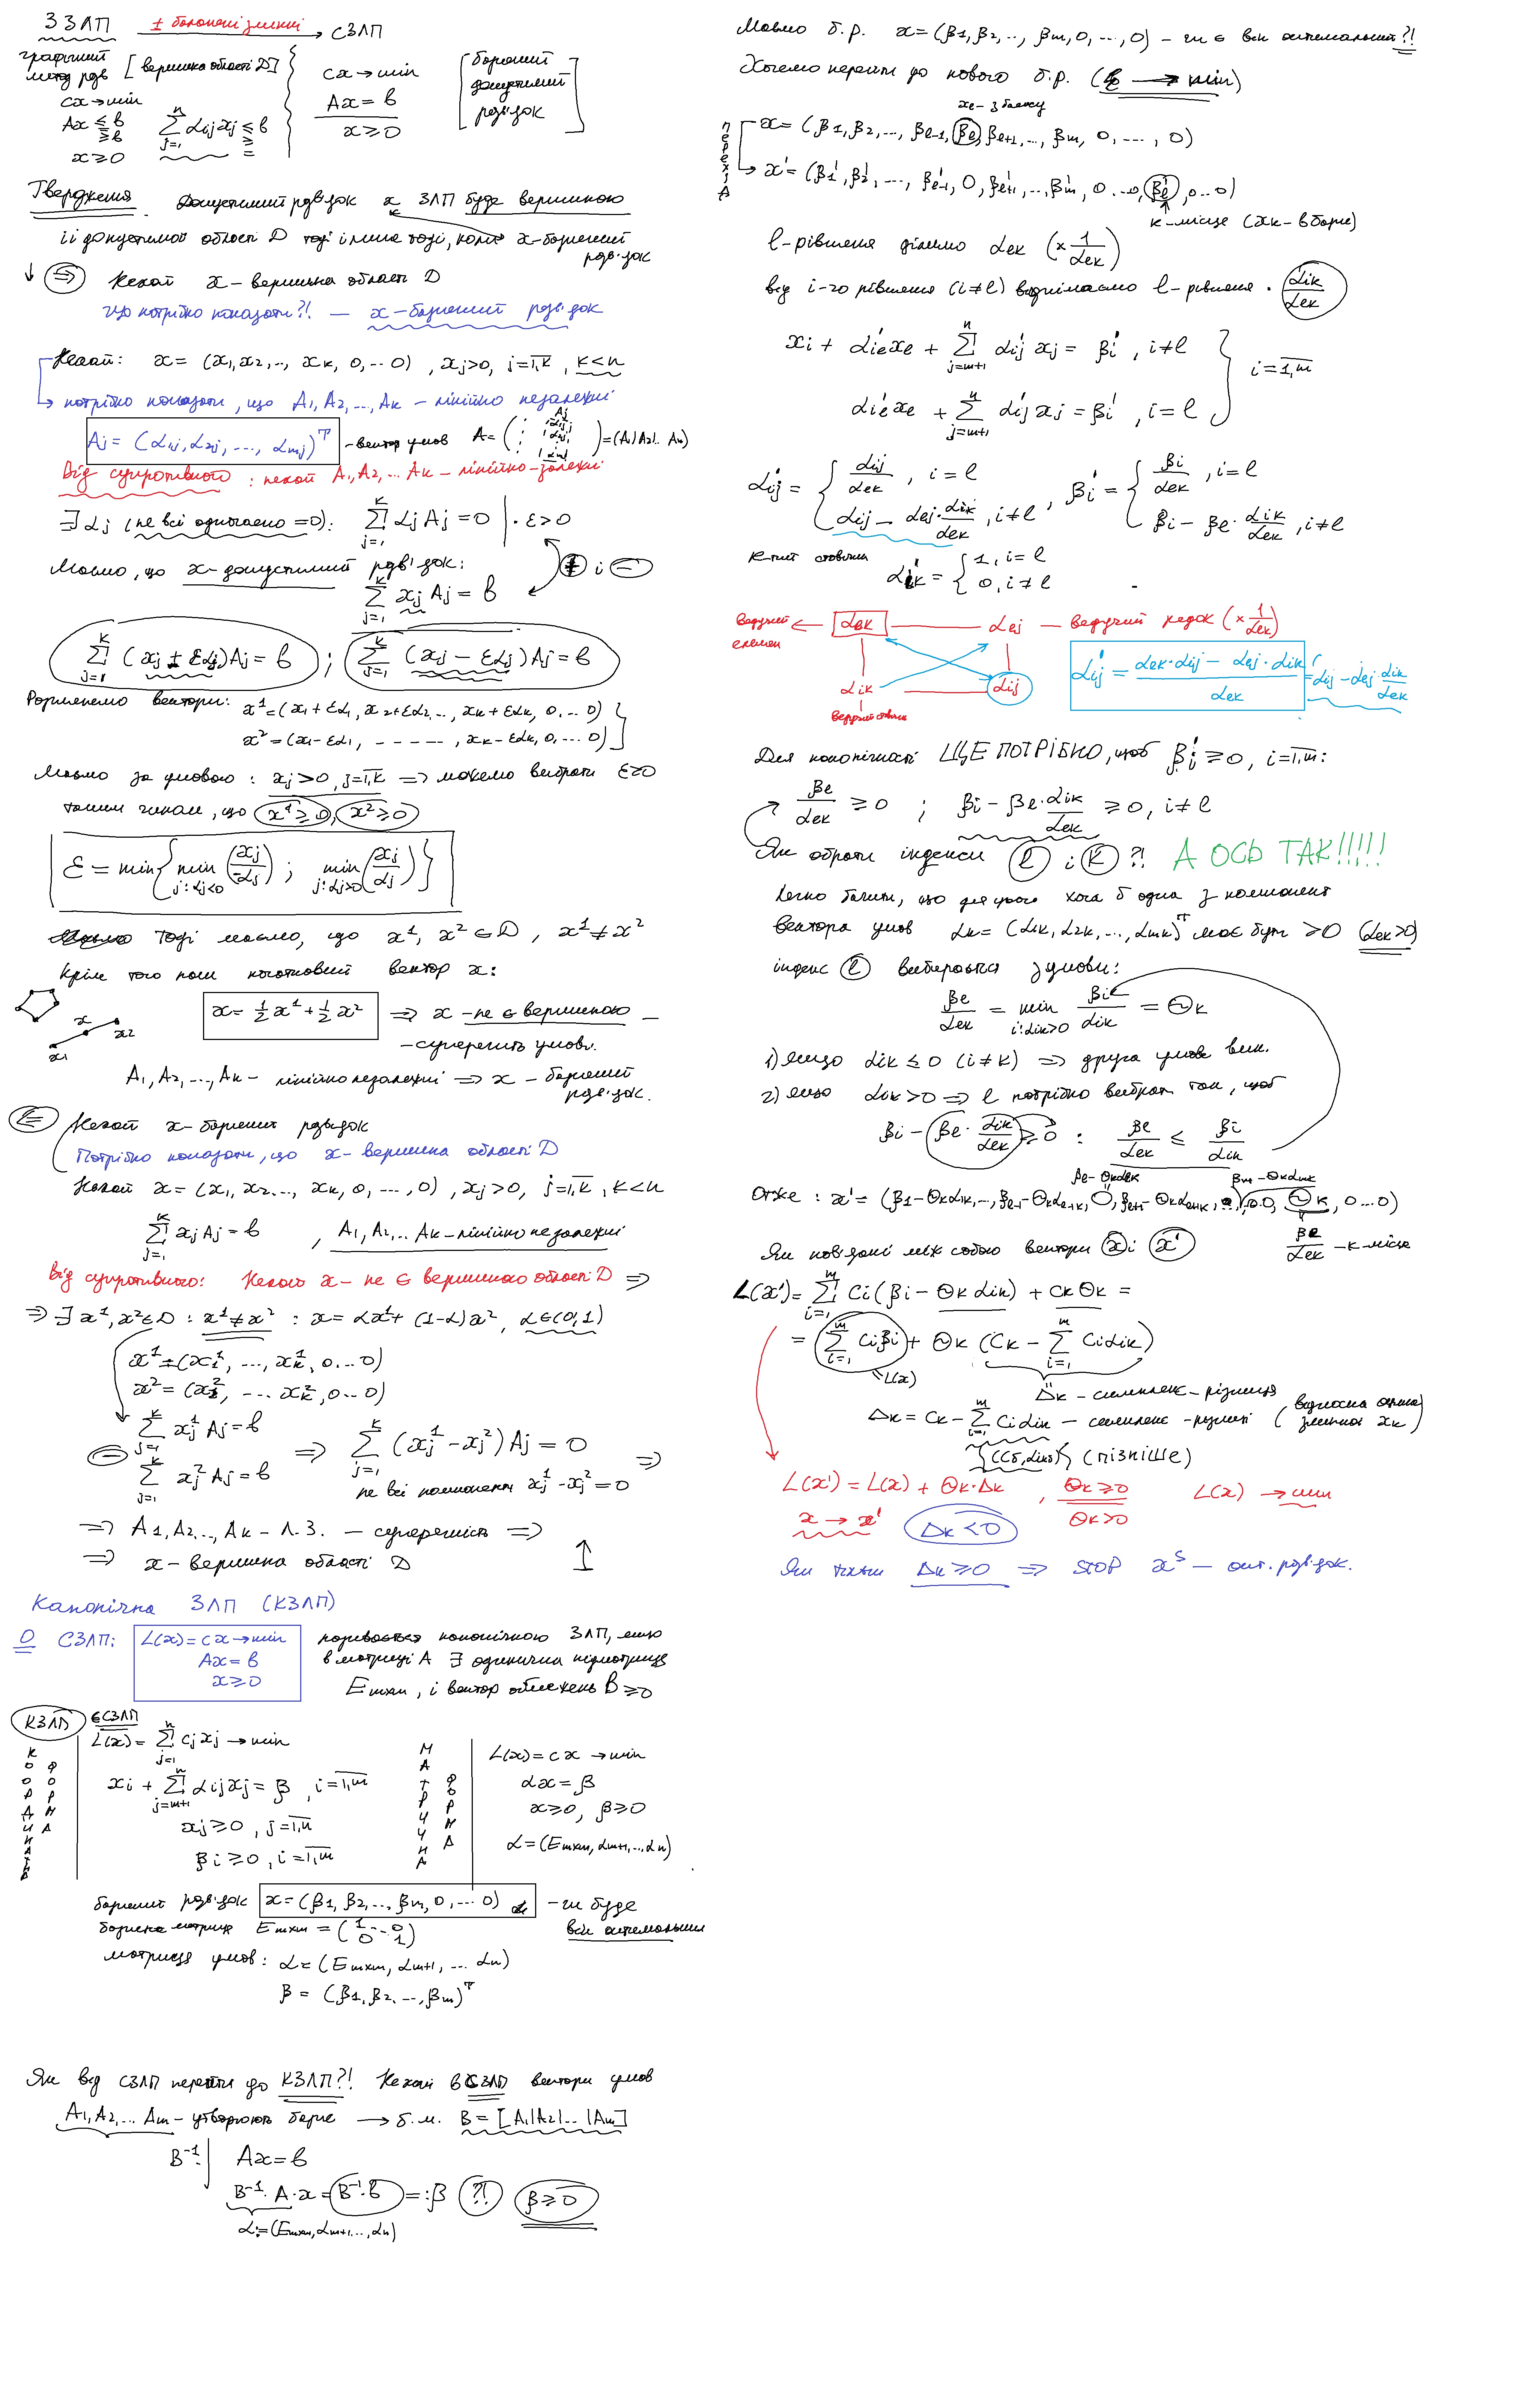 ЗЗЛП ± балансні змінні → СЗЛП
графічний метод розв [вершина області D]
cx → min
Ax ≤ b
≥ b
x ≥ 0
∑_{j=1}^{n} αij xj ≤ b
≥
=
cx → min
Ax = b
x ≥ 0
[базисний допустимий розв'язок]
Твердження. Допустимий розв'язок x ЗЛП буде вершиною
її допустимої області D тоді і лише тоді, коли x - базисний розв'язок
↓ (⇒) Нехай x - вершина області D
Що потрібно показати?!. — x - базисний розв'язок
Нехай: x = (x1, x2, .., xk, 0, .. 0), xj > 0, j = 1,k, k < n
потрібно показати, що A1, A2, ..., Ak - лінійно незалежні
Aj = (α1j, α2j, ..., αmj)^T - вектор умов A = (A1|A2|.. An)
Від супротивного: нехай A1, A2, ... Ak - лінійно-залежні
∃ αj (не всі одночасно = 0): ∑_{j=1}^{k} αj Aj = 0 | · ε > 0
Маємо, що x - допустимий розв'язок:
∑_{j=1}^{k} xj Aj = b
(+) і (−)
∑_{j=1}^{k} (xj + εαj) Aj = b ; ∑_{j=1}^{k} (xj − εαj) Aj = b
Розглянемо вектори: x¹ = (x1 + εα1, x2 + εα2, .., xk + εαk, 0, .. 0)
x² = (x1 − εα1, - - - - -, xk − εαk, 0, ... 0)
Маємо за умовою: xj > 0, j = 1,k ⇒ можемо вибрати ε > 0
таким чином, що x¹ ≥ 0, x² ≥ 0
ε = min { min_{j: αj<0} (xj/αj) ; min_{j: αj>0} (xj/αj) }
Тоді маємо, що x¹, x² ∈ D, x¹ ≠ x²
Крім того наш початковий вектор x:
x = ½ x¹ + ½ x² ⇒ x - не є вершиною —
x
x1
x2
— суперечить умові.
A1, A2, ..., Ak - лінійно незалежні ⇒ x - базисний розв'язок.
(⇐) Нехай x - базисний розв'язок
Потрібно показати, що x - вершина області D
Нехай x = (x1, x2 ..., xk, 0, ..., 0), xj > 0, j = 1,k, k < n
∑_{j=1}^{k} xj Aj = b , A1, A2, .. Ak - лінійно незалежні
Від супротивного: Нехай x - не є вершиною області D ⇒
⇒ ∃ x¹, x² ∈ D : x¹ ≠ x² : x = αx¹ + (1−α)x², α ∈ (0,1)
x¹ = (x1¹, ..., xk¹, 0 ... 0)
x² = (x1², ... xk², 0 .. 0)
∑_{j=1}^{k} xj¹ Aj = b
∑_{j=1}^{k} xj² Aj = b
⇒ ∑_{j=1}^{k} (xj¹ − xj²) Aj = 0 ⇒
не всі компоненти xj¹ − xj² = 0
⇒ A1, A2, .., Ak - Л.З. — суперечність ⇒
⇒ x - вершина області D
Канонічна ЗЛП (КЗЛП)
O СЗЛП: L(x) = cx → min
Ax = b
x ≥ 0
називається канонічною ЗЛП, якщо
в матриці A ∃ одинична підматриця
Emxm, і вектор обмежень b ≥ 0
КЗЛП ∈ СЗЛП
КООРДИНАТНА ФОРМА
L(x) = ∑_{j=1}^{n} cj xj → min
xi + ∑_{j=m+1}^{n} αij xj = β, i = 1,m
xj ≥ 0, j = 1,n
βi ≥ 0, i = 1,m
МАТРИЧНА ФОРМА
L(x) = cx → min
αx = β
x ≥ 0, β ≥ 0
α = (Emxm, αm+1, .. αn)
базисний розв'язок x = (β1, β2, ..., βm, 0, ... 0) - чи буде він оптимальним
базисна матриця Emxm = (1 .. 0 0 .. 1)
матриця умов: α = (Emxm, αm+1, ... αn)
β = (β1, β2, ..., βm)^T
Як від СЗЛП перейти до КЗЛП?! Нехай в СЗЛП вектори умов
A1, A2, ... Am - утворюють базис → б.м. B = [A1|A2|..|Am]
B⁻¹· | Ax = b
B⁻¹ · A · x = B⁻¹ · b =: β (?!) β ≥ 0
α := (Emxm, αm+1, .., αn)
Маємо б.р. x = (β1, β2, .., βm, 0, ..., 0) - чи є він оптимальний?!
Хочемо перейти до нового б.р. (b → min)
xe - з базису
перехід
x = (β1, β2, ..., βe-1, βe, βe+1, .., βm, 0, ..., 0)
x' = (β1', β2', ..., βe-1', 0, βe+1', .., βm', 0 .. 0, βe', 0 .. 0)
k - місце (xk - в базис)
l - рівняння ділимо αek (× 1/αek)
від i-го рівняння (i ≠ l) віднімаємо l - рівняння · αik/αek
xi + αie' xe + ∑_{j=m+1}^{n} αij' xj = βi', i ≠ l
αie' xe + ∑_{j=m+1}^{n} αij' xj = βi', i = l
i = 1,m
αij' = { αij/αek, i = l
αij − αej · αik/αek, i ≠ l ,
βi' = { βi/αek, i = l
βi − βe · αik/αek, i ≠ l
k-тий стовпчик
αik' = { 1, i = l
0, i ≠ l
Ведучий елемен ← αek — αej — ведучий рядок (× 1/αek)
αik — αij
ведучий стовп
αij' = (αek · αij − αej · αik) / αek = αij − αej αik/αek
Для канонічності ЩЕ ПОТРІБНО, щоб βi' ≥ 0, i = 1,m:
βe/αek ≥ 0 ; βi − βe · αik/αek ≥ 0, i ≠ l
Як обрати індекси (l) і (k)?! А ОСЬ ТАК!!!!!
Легко бачити, що для цього хоча б одна з компонент
вектора умов αk = (α1k, α2k, ..., αmk)^T має бути ≥ 0 (αek > 0)
індекс (l) вибирається з умови:
βe/αek = min_{i: αik>0} βi/αik = Θk
1) якщо αik ≤ 0 (i ≠ k) ⇒ друга умова вик.
2) якщо αik > 0 ⇒ l потрібно вибрати так, щоб
βi − βe · αik/αek ≥ 0 : βe/αek ≤ βi/αik
βe − Θkαek
βm − Θkαmk
Отже: x' = (β1 − Θkα1k, .., βe-1 − Θkαe-1k, 0, βe+1 − Θkαe+1k, .., 0..0, Θk, 0 ... 0)
βe/αek - k-місце
Як пов'язані між собою вектори (x) і (x')
L(x') = ∑_{i=1}^{m} ci (βi − Θk αik) + ck Θk =
= ∑_{i=1}^{m} ci βi + Θk (ck − ∑_{i=1}^{m} ci αik)
L(x)
Δk - симплекс-різниця
Δk = ck − ∑_{i=1}^{m} ci αik — симплекс-різниці (відносна оцінка змінної xk)
(cб, αk) (пізніше)
L(x') = L(x) + Θk · Δk, Θk ≥ 0 L(x) → min
Θk > 0
x → x' Δk < 0
Як тільки Δk ≥ 0 ⇒ STOP x^s — опт. розв'язок.